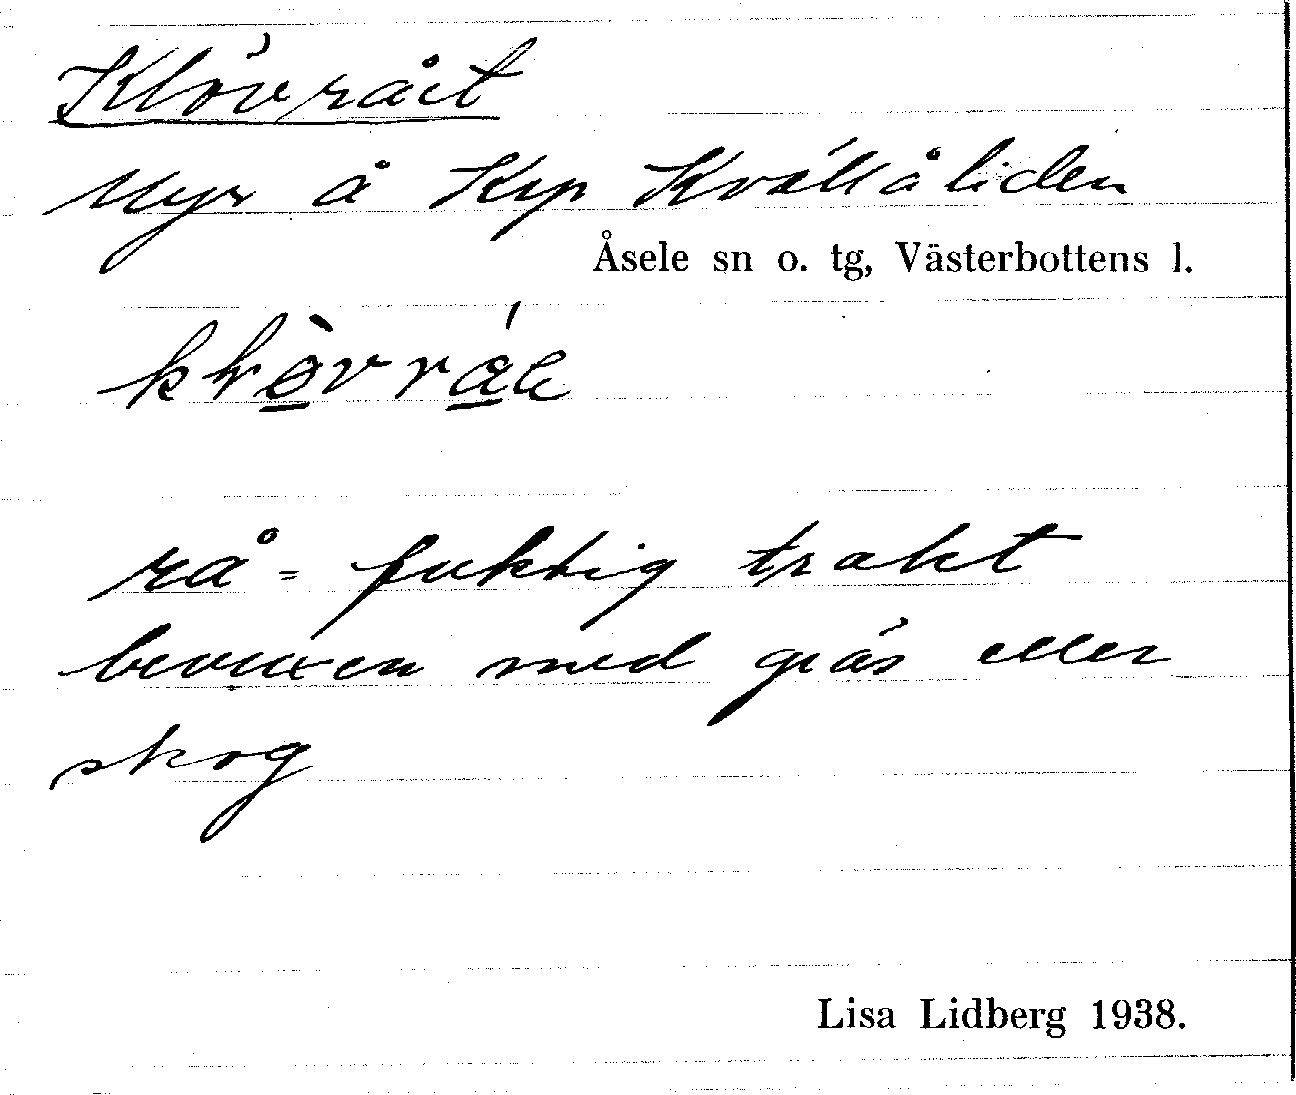 Klövråit
Myr å Krp Kvällåliden
Åsele sn o. tg, Västerbottens l.
rå = fuktig trakt
bevuxen med gräs eller
skog
Lisa Lidberg 1938.